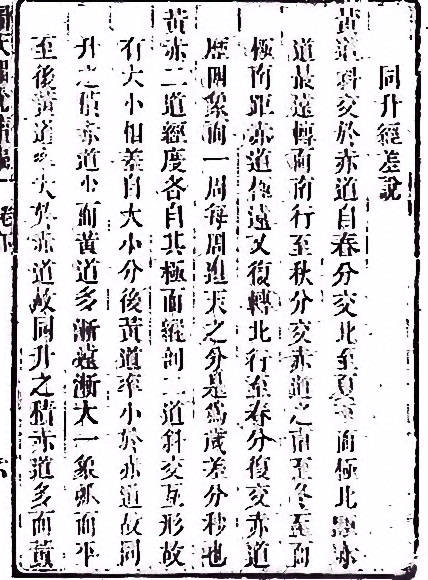 同升經差說
黃道斜交於赤道自春分交北至夏至而極北距赤
道最遠轉而南行至秋分交赤道之南至冬至而
極南距赤道極遠又復轉北行至春分復交赤道
歷四象而一周每周進天之分是為歲差分秒也
黃赤二道經度各自其極而縱剖二道斜交互形故
有大小相差自大小分後黃道率小於赤道故同
升之積赤道少而黃道多漸遠漸大一象限而平
至後黃道率大於赤道故同升之積赤道多而黃